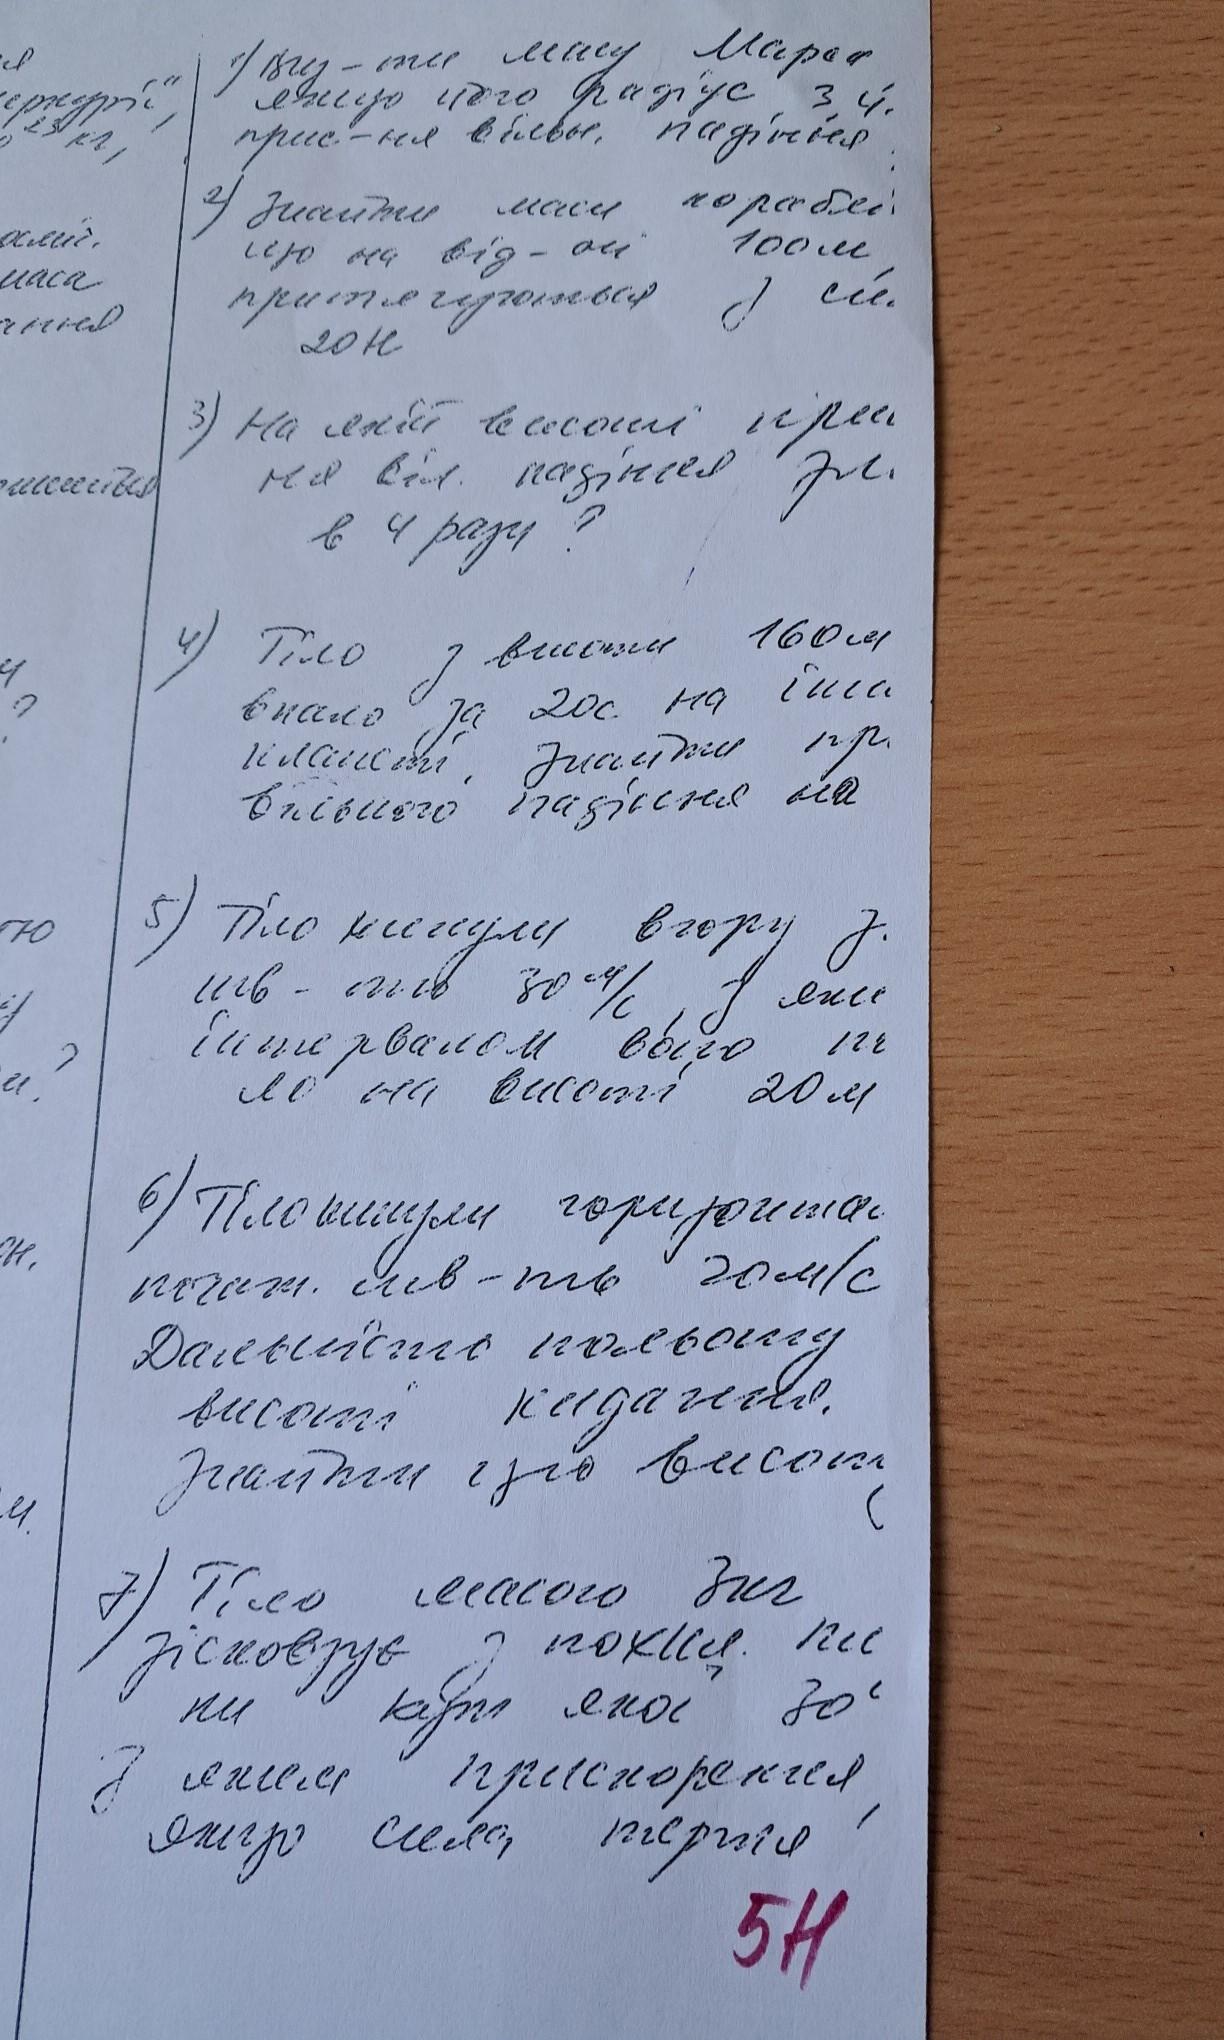 ня
меркурії",
10²³ кг,
маса
ання
?
тю
1) Виз-ти масу Марса
якщо його радіус 3 4.
прис-ня вільн. падіння
2) Знайти маси кораблі
що на від-ні 100м
притягуються з си.
20Н
3) На якій висоті при
ня віл. падіння зм.
в 4 рази?
4) Тіло з висоти 160м
впало за 20с на інш
планеті. Знайти пр.
вільного падіння на
5) Тіло кинули вгору з.
шв-тю 30 м/с, З яки
інтервалом воно
ло на висоті 20м
6) Тіло кинули горизонтал
почат. шв-ть 20м/с
Дальність польоту
висоті кидання.
Знайти цю висоту
7) Тіло масою 3кг
зісковзує з похил. пл
ни кут якої 30°
З яким прискорення,
якщо сила тертя
5Н